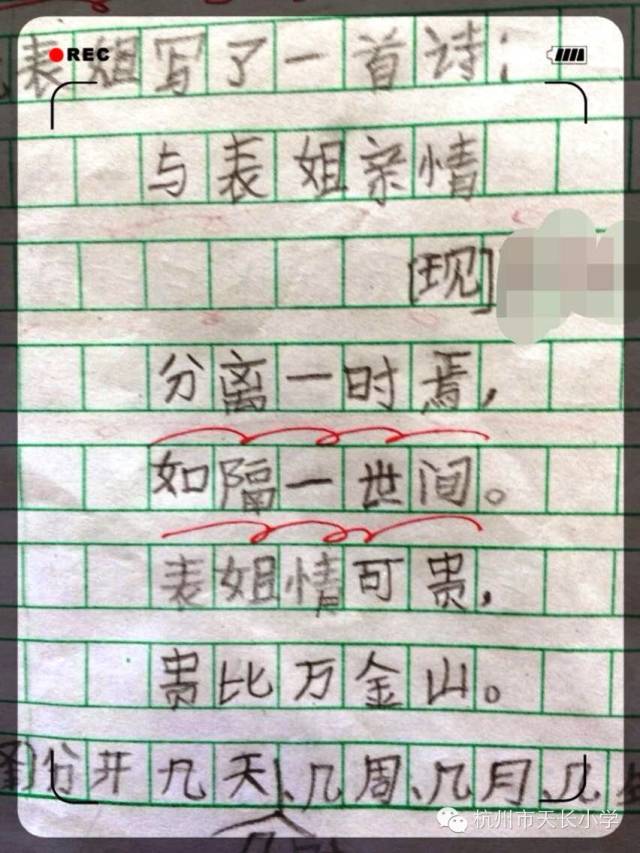 REC
表姐写了一首诗：
与表姐亲情
[现]
分离一时焉，
如隔一世间。
表姐情可贵，
贵比万金山。
分开几天、几周、几月、几
杭州市天长小学